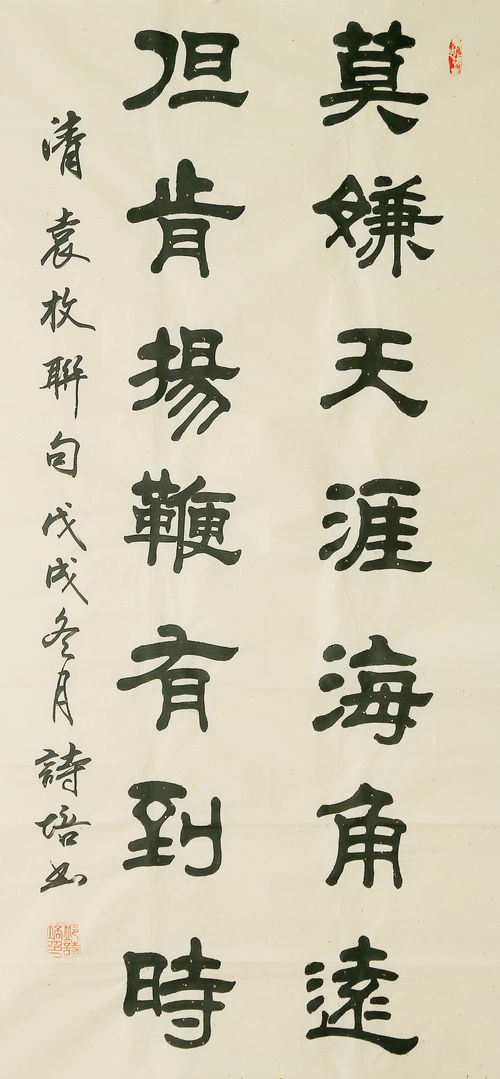 莫嫌天涯海角遠
但肯揚鞭有到時
清袁枚聯句戊戌冬月詩培书